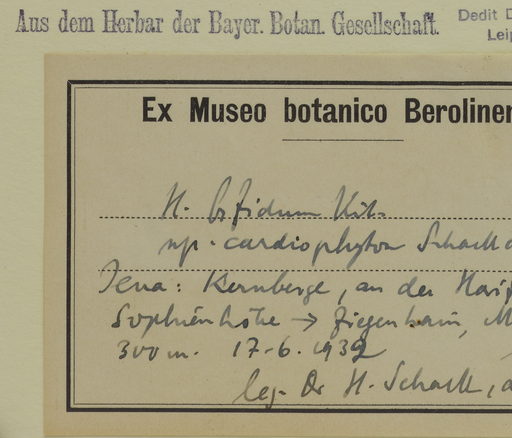 Aus dem Herbar der Bayer. Botan. Gesellschaft.
Dedit D
Leip
Ex Museo botanico Beroliner
H. bifidum Kit.
np. cardiophyton Schack
Jena: Kernberge, an der
Sophienhöhe → Ziegenhain, M
300 m. 17.6.1932
leg. Dr H. Schack,